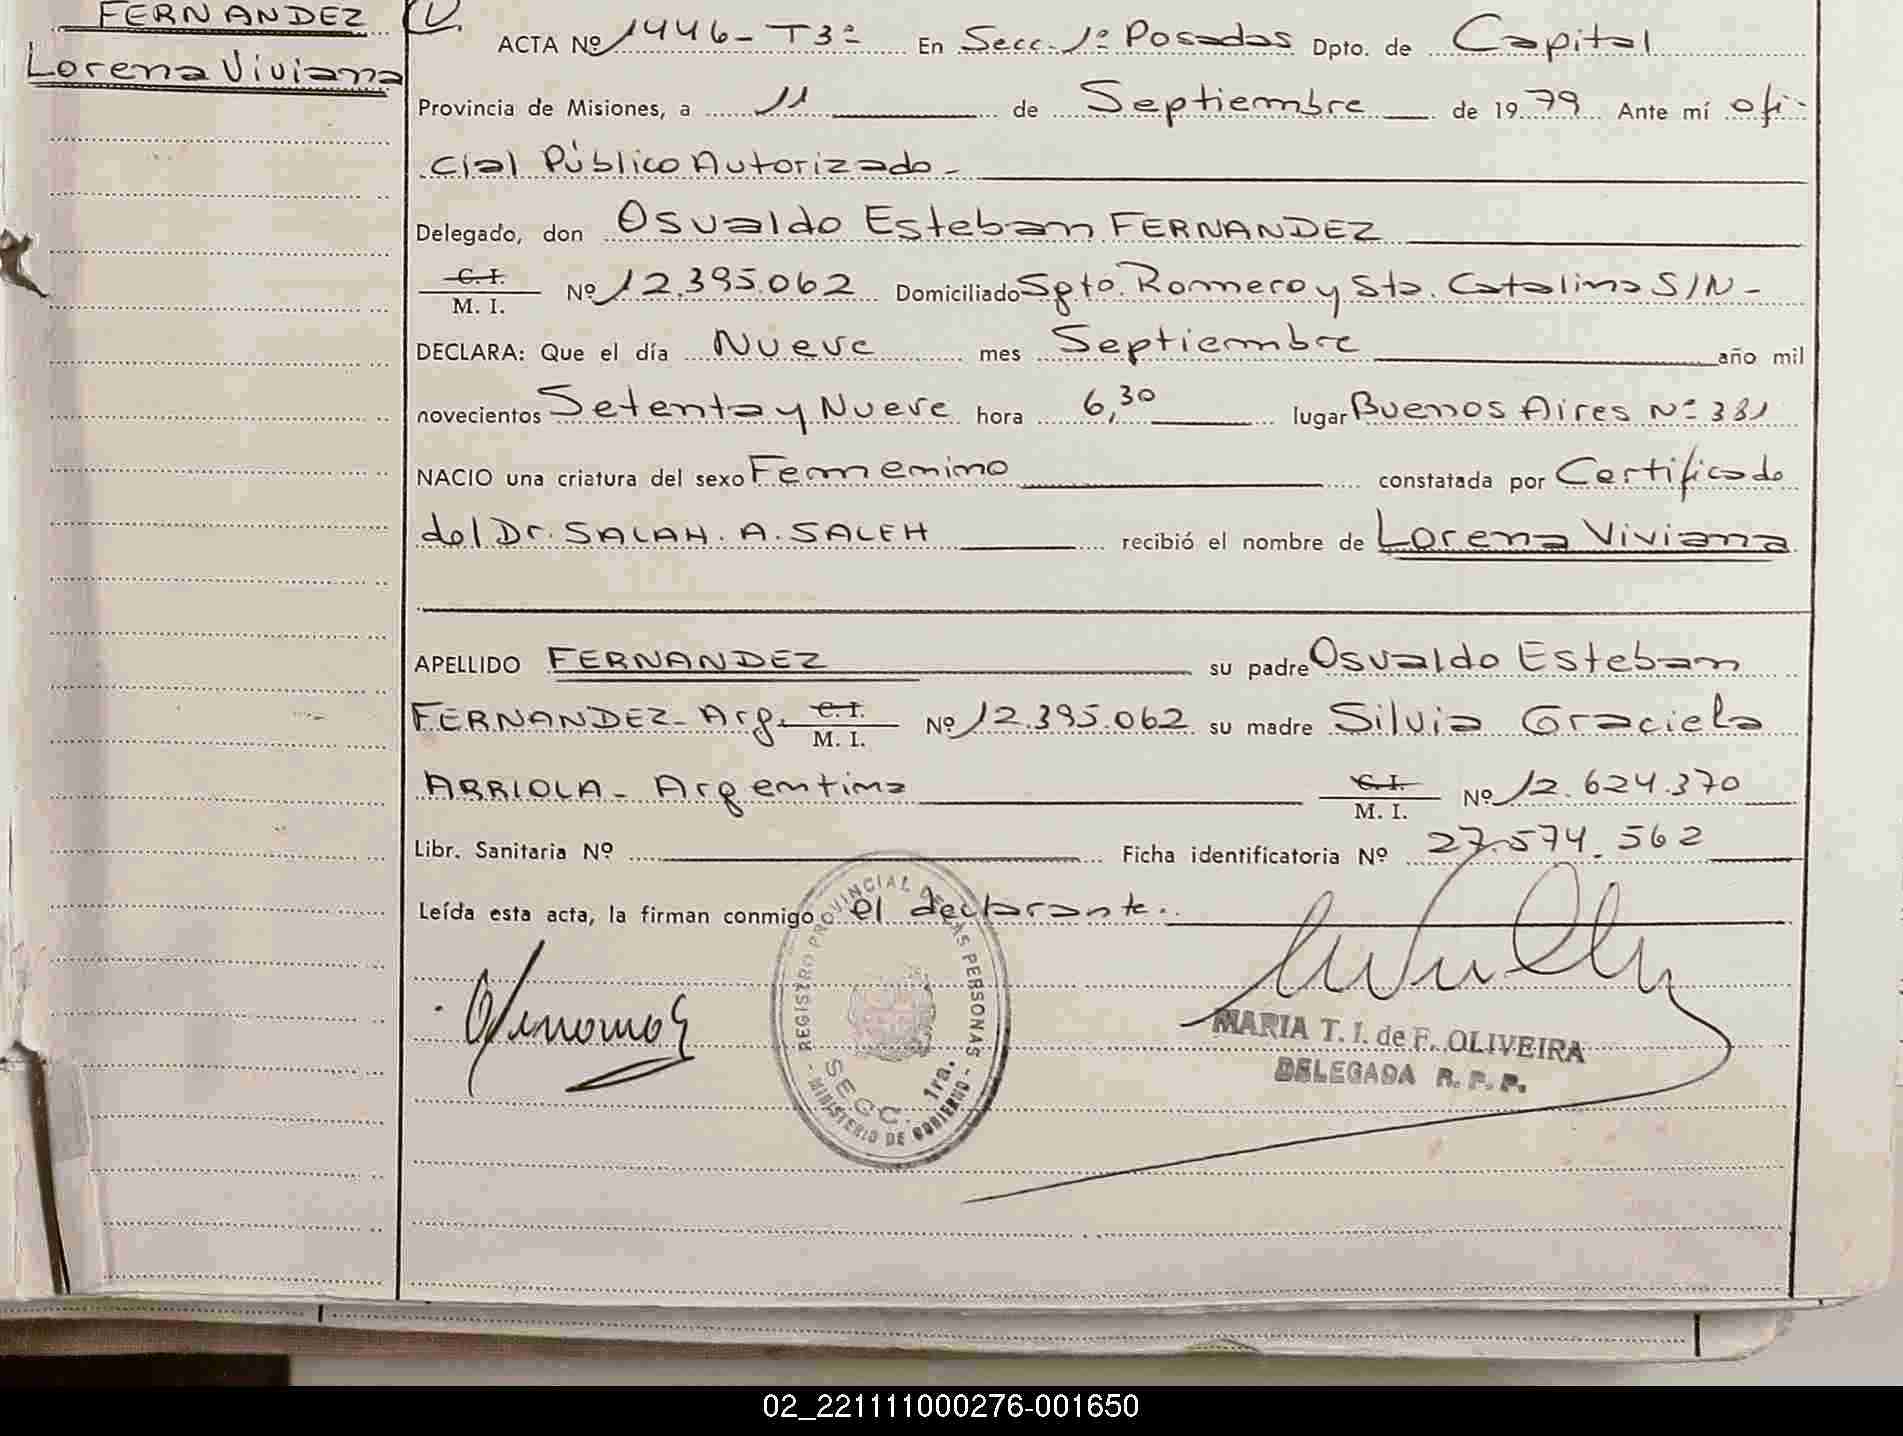 FERNANDEZ
Lorena Viviana
ACTA Nº 1446- T3º En Secc. 1º Posadas Dpto. de Capital
Provincia de Misiones, a 11 de Septiembre de 1979 Ante mí ofi-
cial Público Autorizado-
Delegado, don Osvaldo Esteban FERNANDEZ
C. I.
M. I. Nº 12.395.062 Domiciliado Sgto. Romero y Sta. Catalina S/N-
DECLARA: Que el día Nueve mes Septiembre año mil
novecientos Setenta y Nueve hora 6,30 lugar Buenos Aires Nº 331
NACIO una criatura del sexo Femenino constatada por Certificado
del Dr. SALAH. A. SALEH recibió el nombre de Lorena Viviana
APELLIDO FERNANDEZ su padre Osvaldo Esteban
FERNANDEZ- Arg. C. I. M. I. Nº 12.395.062 su madre Silvia Graciela
ARRIOLA- Argentina C. I. M. I. Nº 12.624.370
Libr. Sanitaria Nº Ficha identificatoria Nº 27.574.562
Leída esta acta, la firman conmigo el declarante.
REGISTRO PROVINCIAL DE LAS PERSONAS
SECC. 1ra.
- MINISTERIO DE GOBIERNO -
MARIA T. I. de F. OLIVEIRA
DELEGADA R. P. P.
02_221111000276-001650